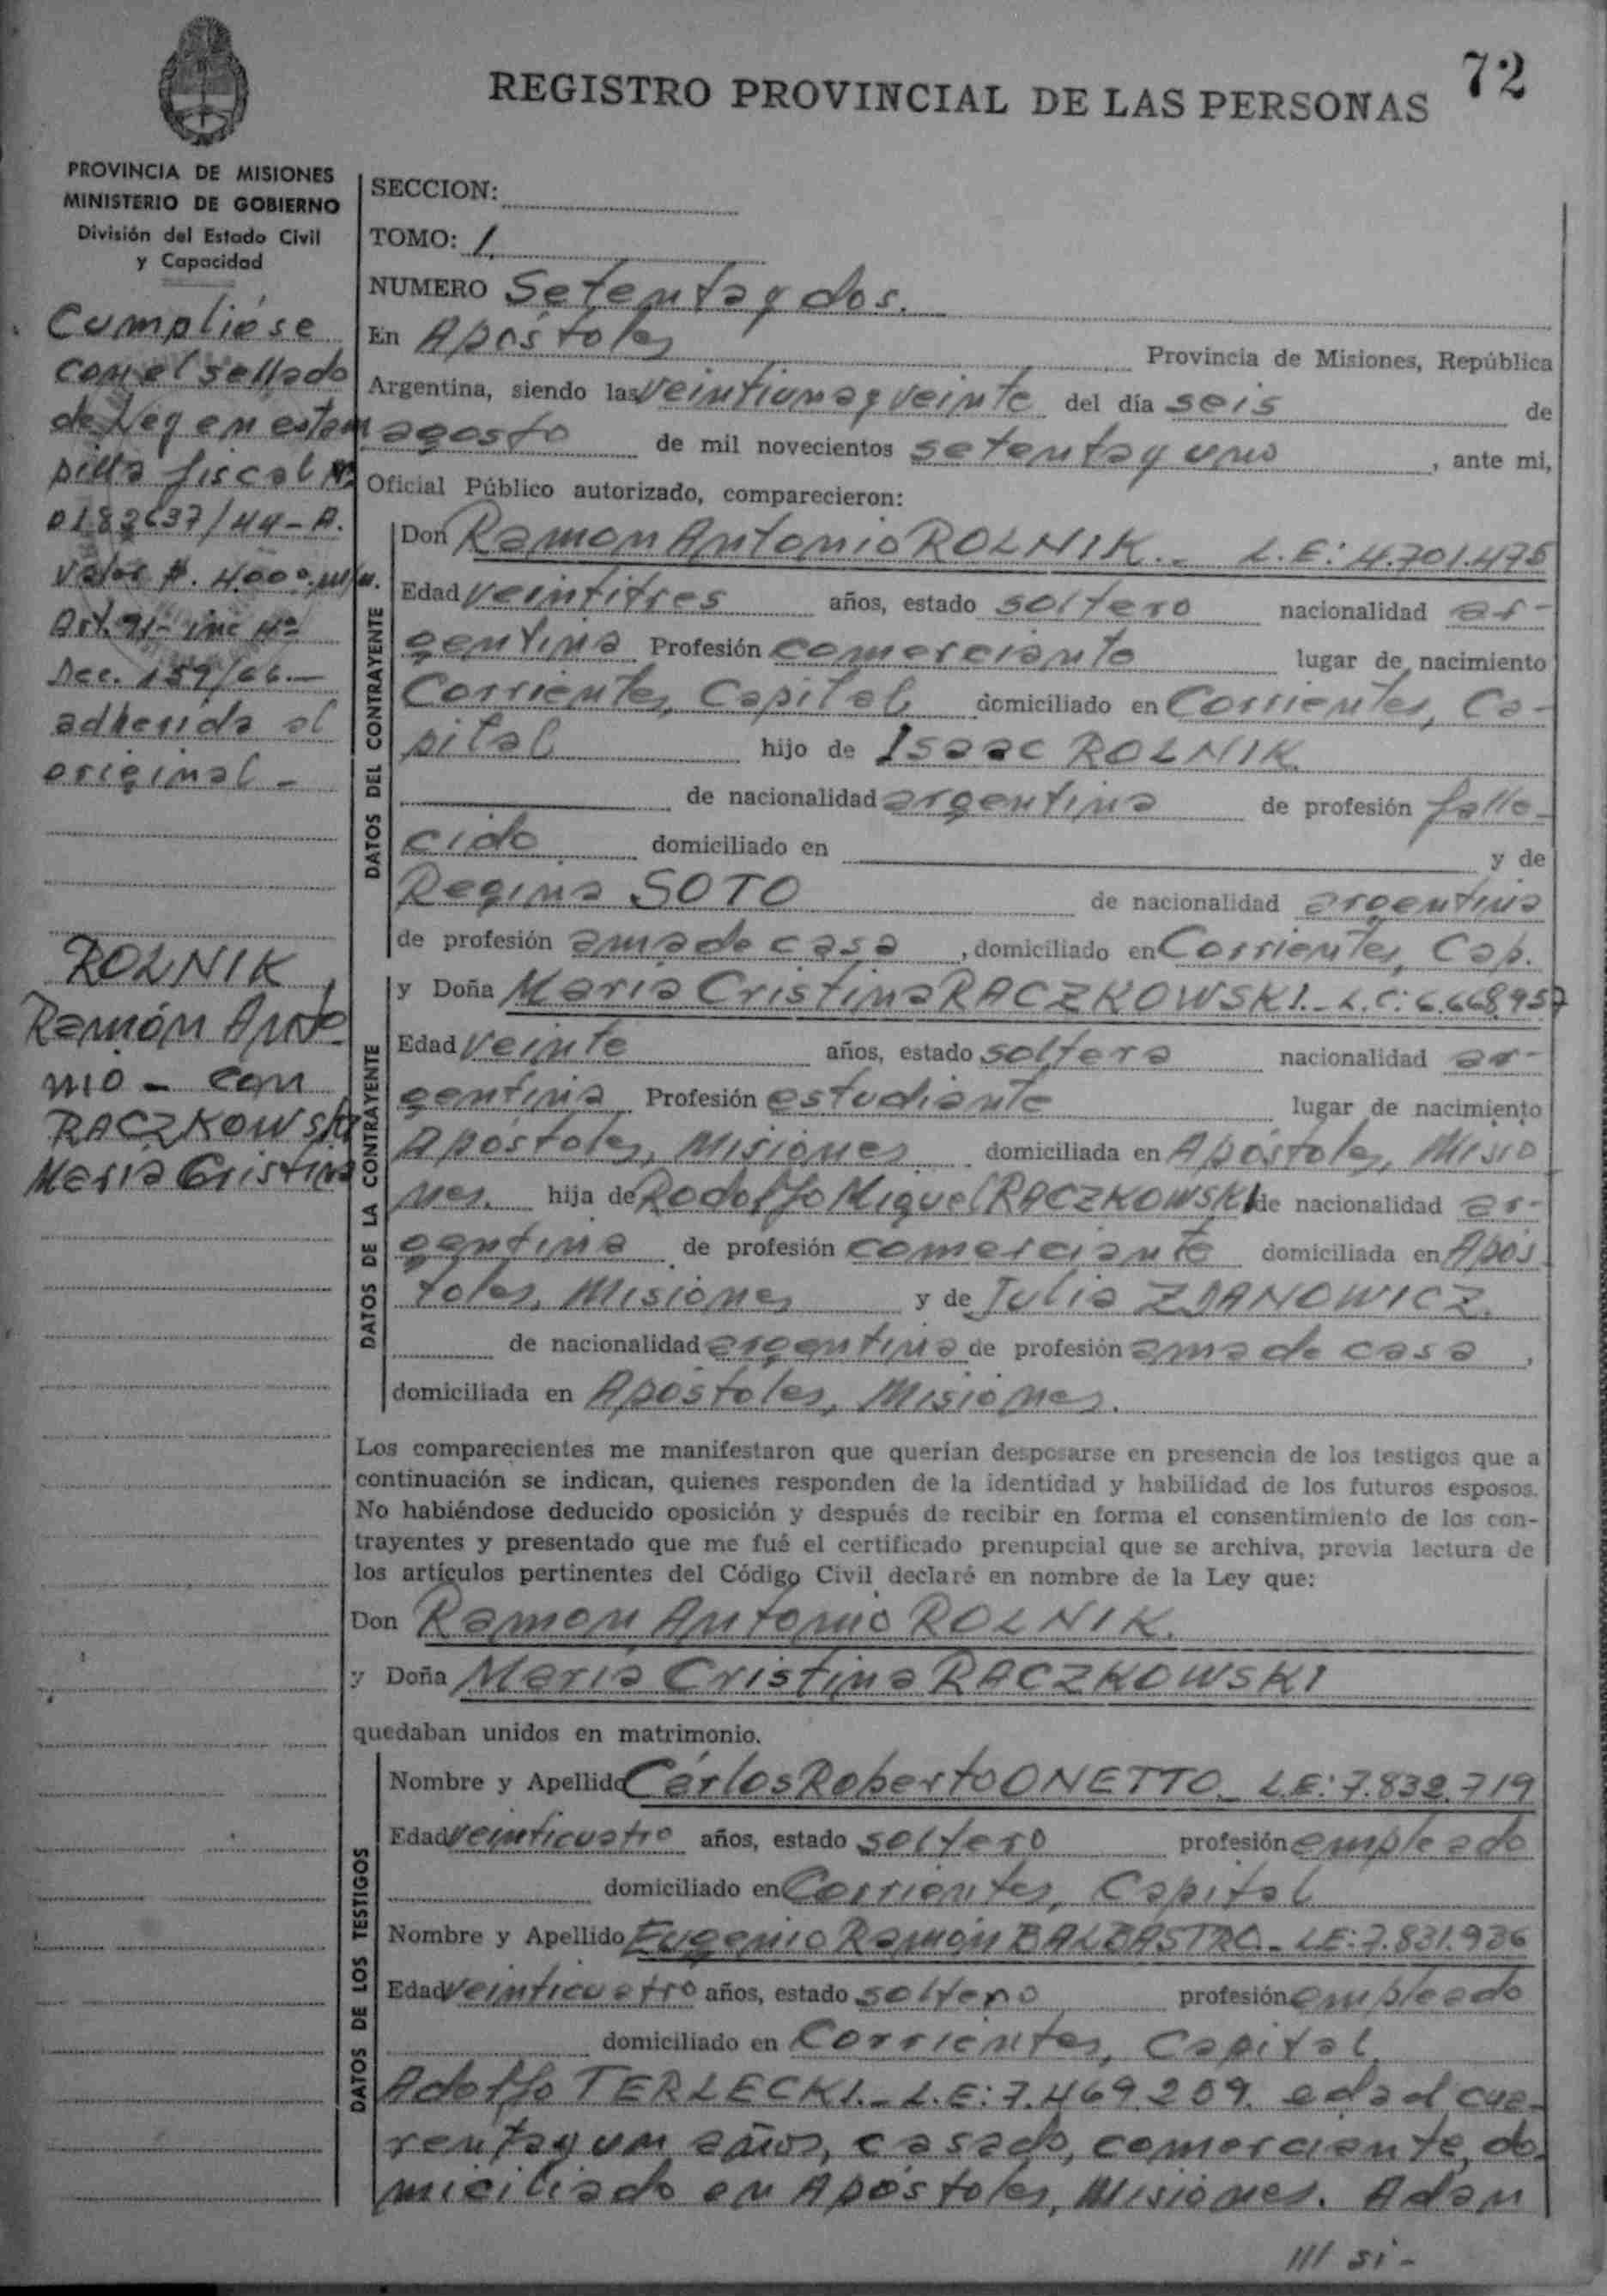 72
REGISTRO PROVINCIAL DE LAS PERSONAS
PROVINCIA DE MISIONES
MINISTERIO DE GOBIERNO
División del Estado Civil
y Capacidad
Cumplióse
con el sellado
de Ley en estam
pilla fiscal Nº
0182637/44-A.
Valor $. 4000.m/n.
Art. 91- inc 4º
Dec. 159/66.-
adherida al
original -
ROLNIK
Ramón Anto-
nio - con
RACZKOWSKI
María Cristina
SECCION:
TOMO: 1.
NUMERO Setenta y dos.
En Apóstoles Provincia de Misiones, República
Argentina, siendo las veintiuna y veinte del día seis de
agosto de mil novecientos setenta y uno, ante mi,
Oficial Público autorizado, comparecieron:
DATOS DEL CONTRAYENTE
Don Ramon Antonio ROLNIK.- L.E: 4.701.475
Edad veintitres años, estado soltero nacionalidad ar-
gentina Profesión comerciante lugar de nacimiento
Corrientes, Capital, domiciliado en Corrientes, Ca-
pital hijo de Isaac ROLNIK.
de nacionalidad argentina de profesión falle-
cido domiciliado en y de
Regina SOTO de nacionalidad argentina
de profesión ama de casa, domiciliado en Corrientes, Cap.
DATOS DE LA CONTRAYENTE
y Doña María Cristina RACZKOWSKI.- L.C: 6.668.957
Edad veinte años, estado soltera nacionalidad ar-
gentina Profesión estudiante lugar de nacimiento
Apóstoles, Misiones domiciliada en Apóstoles, Misio
nes. hija de Rodolfo Miguel RACZKOWSKI de nacionalidad ar-
gentina de profesión comerciante domiciliada en Após
toles, Misiones y de Julia ZDANOWICZ.
de nacionalidad argentina de profesión ama de casa,
domiciliada en Apóstoles, Misiones.
Los comparecientes me manifestaron que querían desposarse en presencia de los testigos que a
continuación se indican, quienes responden de la identidad y habilidad de los futuros esposos.
No habiéndose deducido oposición y después de recibir en forma el consentimiento de los con-
trayentes y presentado que me fué el certificado prenupcial que se archiva, previa lectura de
los artículos pertinentes del Código Civil declaré en nombre de la Ley que:
Don Ramon Antonio ROLNIK.
y Doña María Cristina RACZKOWSKI
quedaban unidos en matrimonio.
DATOS DE LOS TESTIGOS
Nombre y Apellido Cárlos Roberto ONETTO.- L.E: 7.832.719
Edad veinticuatro años, estado soltero profesión empleado
domiciliado en Corrientes, Capital
Nombre y Apellido Eugenio Ramón BALBASTRO.- LE: 7.831.936
Edad veinticuatro años, estado soltero profesión empleado
domiciliado en Corrientes, Capital.
Adolfo TERLECKI.- L.E: 7.469.209. edad cua-
renta y un años, casado, comerciante, do-
miciliado en Apóstoles, Misiones. Adan
/// si-